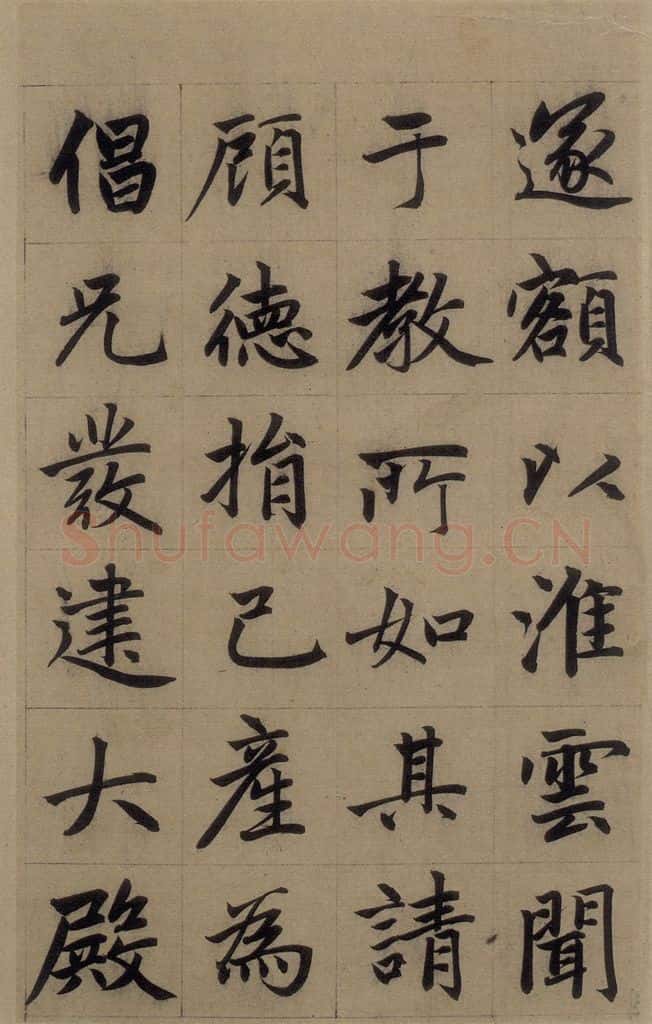 遂額以淮雲聞
于教所如其請
顧德捐己產為
倡兄叢建大殿
Shufawang.CN